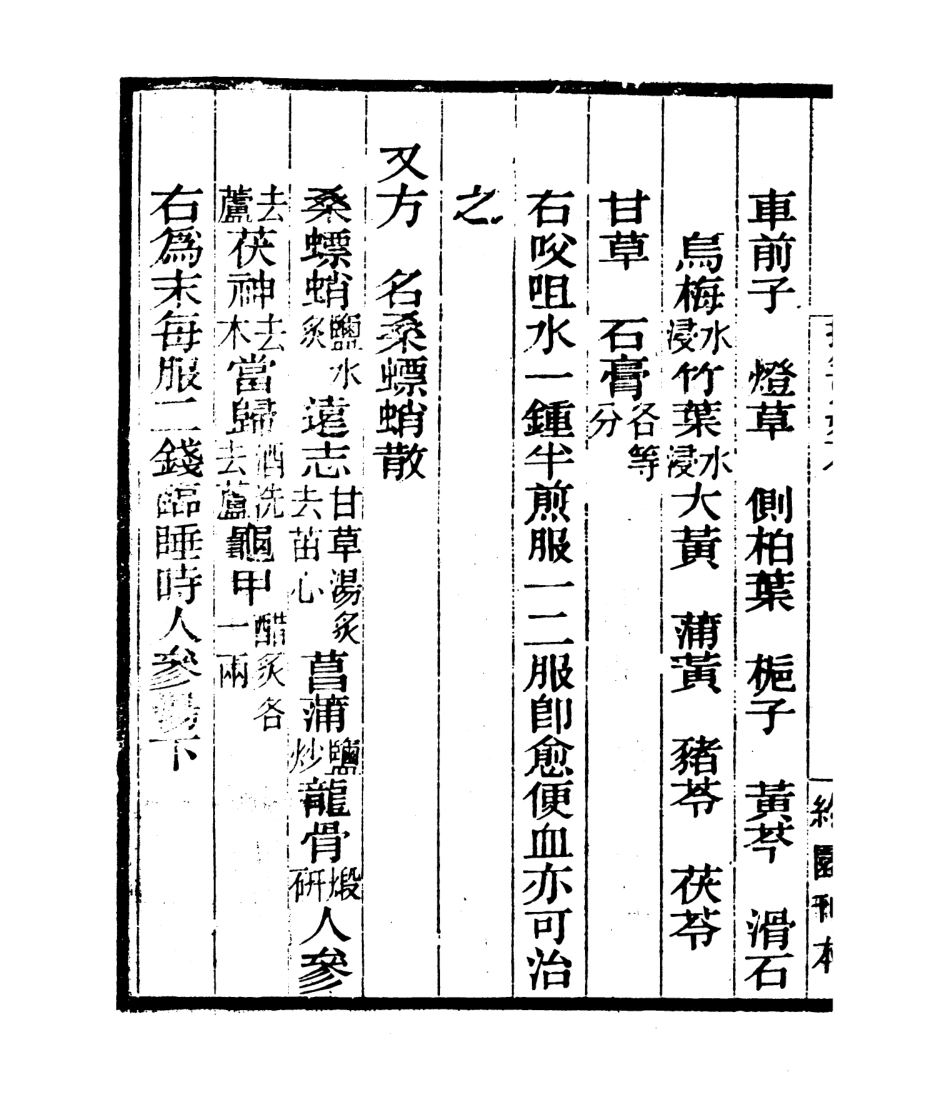 車前子　燈草　側柏葉　梔子　黃芩　滑石
烏梅水浸竹葉水浸大黃　蒲黃　豬苓　茯苓
甘草　石膏各等分
右㕮咀水一鍾半煎服一二服卽愈便血亦可治
之
又方　名桑螵蛸散
桑螵蛸鹽水炙遠志甘草湯炙去苗心菖蒲鹽炒龍骨煅研人參
去蘆茯神去木當歸酒洗去蘆龜甲醋炙各一兩
右爲末每服二錢臨睡時人參湯下